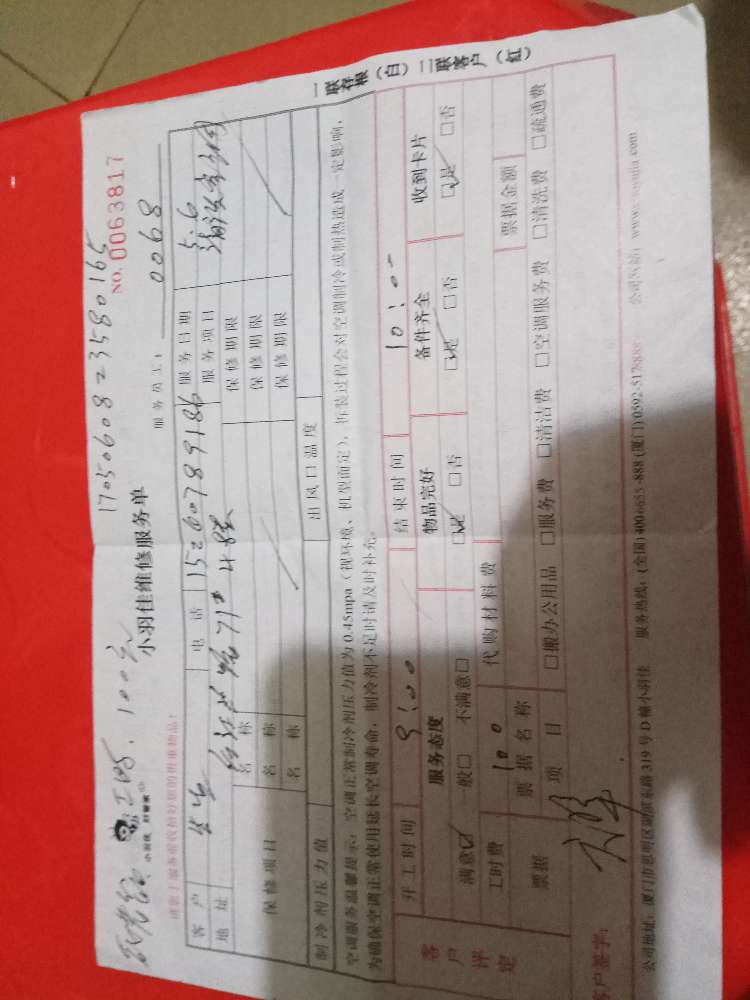 1705060823580165
100元
小羽佳维修服务单
NO. 0063817
服务员工： 0068
客户 电话 15260789186 服务日期 5.6
地址 71# 服务项目
保修项目 名称 保修期限
名称 保修期限
名称 保修期限
制冷剂压力值 出风口温度
空调服务温馨提示：空调正常制冷剂压力值为0.45mpa（视环境、机型而定），拆装过程会对空调制冷或制热造成一定影响，
为确保空调正常使用延长空调寿命，制冷剂不足时请及时补充。
客户评定 开工时间 9:00 结束时间 10:00
服务态度 物品完好 备件齐全 收到卡片
满意☑ 一般□ 不满意□ ☑是 □否 ☑是 □否 ☑是 □否
工时费 100 代购材料费
票据 票据名称 票据金额
项目 □搬办公用品 □服务费 □清洁费 □空调服务费 □清洗费 □疏通费
客户签字：
公司地址：厦门市思明区湖滨东路319号D幢小羽佳 服务热线：(全国)4006655-888 (厦门)0592-5178888 公司网站：www.xiaoyujia.com
一联存根（白）二联客户（红）